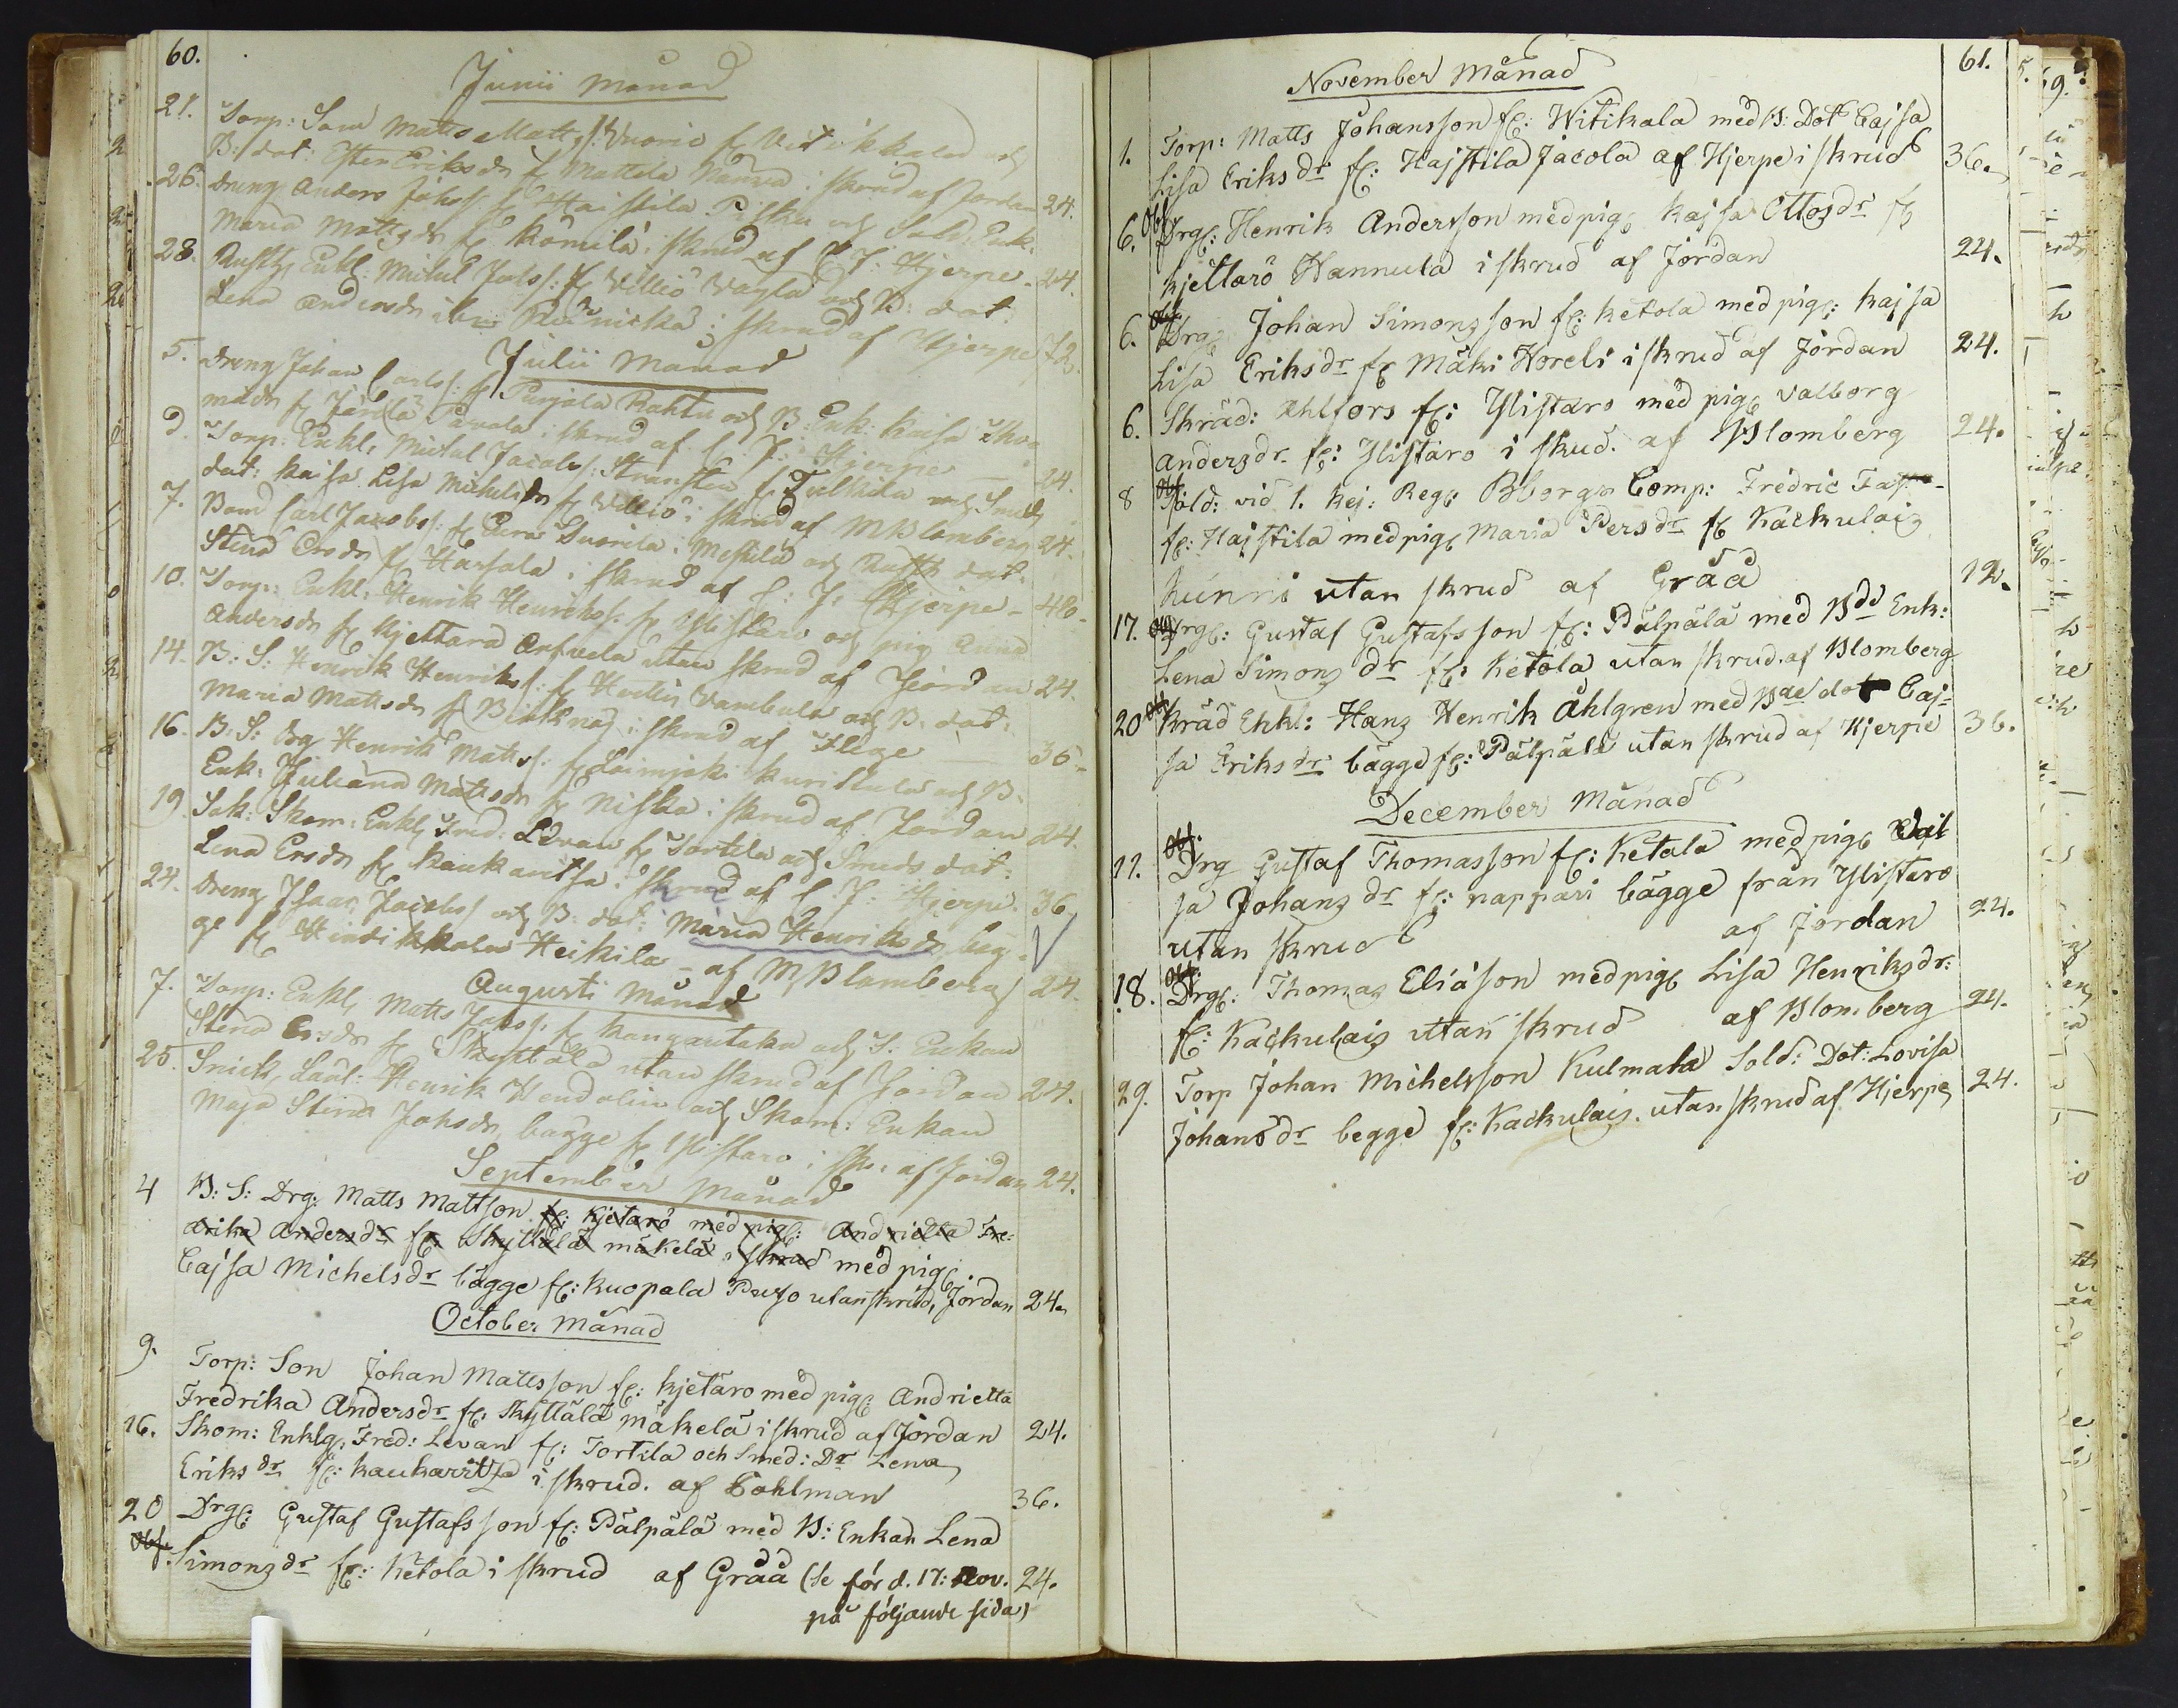 60.
Junii Månad
21. Torp: Son Matts Matts: Vuorio fr Vitikkala och
B: dot: Ester Eriksdr fr Mattila Nanna i skrud af Jordan 24.
26. Dreng Anders Johss fr Haistila Piska och Sold. Enk.
Maria Mattsdr fr Kömilä i skrud af C J. Hjerpe - 24.
28. Rusth Enkl: Mickel Jacobs: fr Villiö Vayla och B: dot:
Lena Andersdr ibm i skrud af Hjerpe 72.
Julii Månad
5. Dreng Johan Carlss: fr Purjala Rahtu och B: Enk: Kaisa Tho-
masdr fr Järilä Pavala i skrud af C. J: Hjerpe 24.
d. Torp: Enkl. Mickel Jacobs: Stransten fr Tulkkila och Smeds
dot: Kaisa Lisa Michelsdr fr Villiö i skrud af M Blomberg 24.
7. Bond Carl Jacobs: fr Pera Suorila i Meskila och Rusth dot.
Stina Ersdr fr Harjala i skrud af C: J: Hjerpe - 48.
10. Torp: Enkl. Henrik Henrikss: fr Ylistaro och pig Anna
Andersdr fr Kjettara Arfvela utan skrud af Jordan 24.
14. B: S: Henrik Henrikss: fr Hurlin Vambula och B: dot:
Maria Mattsdr fr Pirknäs i skrud af Flege 36.
16. B: S: Drg Henrik Matts: fr Loimjoki Kuriskala och B:
Enk: Juliana Mattsdr fr Niska i skrud af Jordan 24.
19. Sok: Skom: Enkl Fred: Levan fr Tortila och Smeds dot:
Lena Ersdr fr Kaukaritsa i skrud af C. J: Hjerpe. 36.
24. Dreng Isaac Jacobs och B: dot: Maria Henriksdr beg-
ge fr Hindikkala Heikila - af M Blomberg 24.
Augusti Månad
7. Torp: Enkl, Matts Jacss: fr Kangantaka och S: Enkan
Stina Ersdr fr Skyttälä utan skrud af Jordan 24.
25. Snick, Lärl: Henrik Hendelin och Skom: Enkan
Maja Stina Johsdr bägge fr Ylistaro i skr: af Jordan 24.
September Månad
4 B: S: Drg: Matts Mattson fr: Kjetarö med pig: Andrietta Fre-
drika Andersdr fr: Skyttälä mäkelä i skrud med pig
Cajsa Michelsdr bägge fr: Kuopala Purso utan skrud, Jordan 24.
October Månad
9. Torp: Son Johan Mattsson fr: Kjetaro med pig Andrietta
Fredrika Andersdr fr: Skyttälä mäkelä i skrud af Jordan 24.
16. Skom: Enklg, Fred: Levan fr: Tortila och Smed: Dr Lena
Eriksdr fr: Kaukaritza i skrud. af Bohlman 36.
20 Drg: Gustaf Gustafsson fr: Pälpälä med B: Enkan Lena
Obs. Simonsdr fr: Ketola i skrud af Gråå (Se för d. 17: Nov. 24.
på följande sida)
61.
November Månad
1. Torp: Matts Johansson fr: Witikala med B: Dot Cajsa
Lisa Eriksdr fr: Hajstila Jacola af Hjerpe i skrud 36.
6. Obs Drg: Henrik Andersson med pig Kajsa Ottosdr fr
Kjettarö Hannula i skrud af Jordan 24.
6. Obs Drg Johan Simonsson fr: Ketola med pig: Kajsa
Lisa Eriksdr fr Mäki Horeli i skrud af Jordan 24.
6. Skräd: Ahlfors fr: Ylistaro med pig Valborg
Andersdr fr: Ylistaro i skud. af Blomberg 24.
8 Obs Sold: vid 1. Kej: Reg: Bborgs Comp: Fredric
fr: Hajstila med pig Maria Persdr fr Kackulais
Kunni utan skrud af Gråå 12.
17. Obs Drg: Gustaf Gustafsson fr: Pälpälä med Bde Enk:
Lena Simonsdr fr: Ketola utan skrud. af Blomberg
20 Obs Skräd Ehkl: Hans Henrik Åhlgren med Bde dot Caj-
sa Eriksdr bägge fr: Pälpälä utan skrud af Hjerpe 36.
December Månad
11. Obs. Drg Gustaf Thomasson fr: Ketala med pig
sa Johansdr fr: nappari bägge från Ylistaro
utan skrud af Jordan 24.
18. Obs. Drg: Thomas Eliäson med pig Lisa Henriksdr:
fr: Kackulais utan skrud af Blomberg 24.
29. Torp Johan Michelsson Kulmala Sold: Dot: Lovisa
Johansdr begge fr: Kackulais. utan skrud af Hjerpe 24.